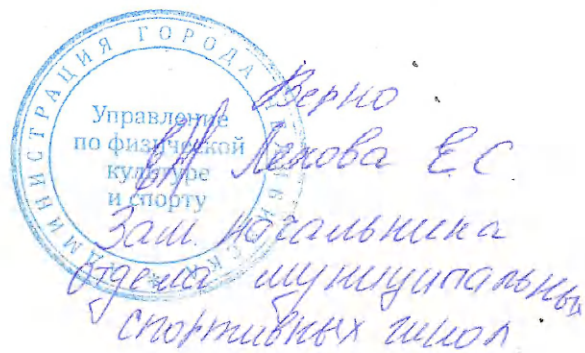 АДМИНИСТРАЦИЯ ГОРОДА
Управление
по физической
культуре
и спорту
Верно
Лекова Е.С
Зам. начальника
отдела муниципальных
спортивных школ